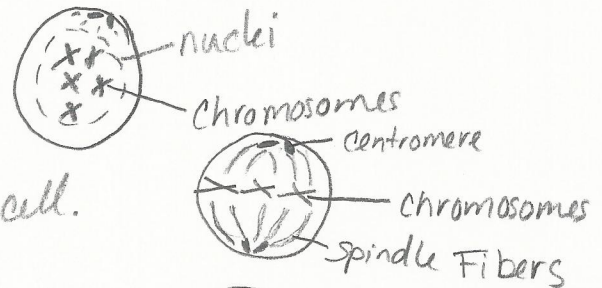 nuclei
chromosomes
centromere
cell.
chromosomes
spindle Fibers